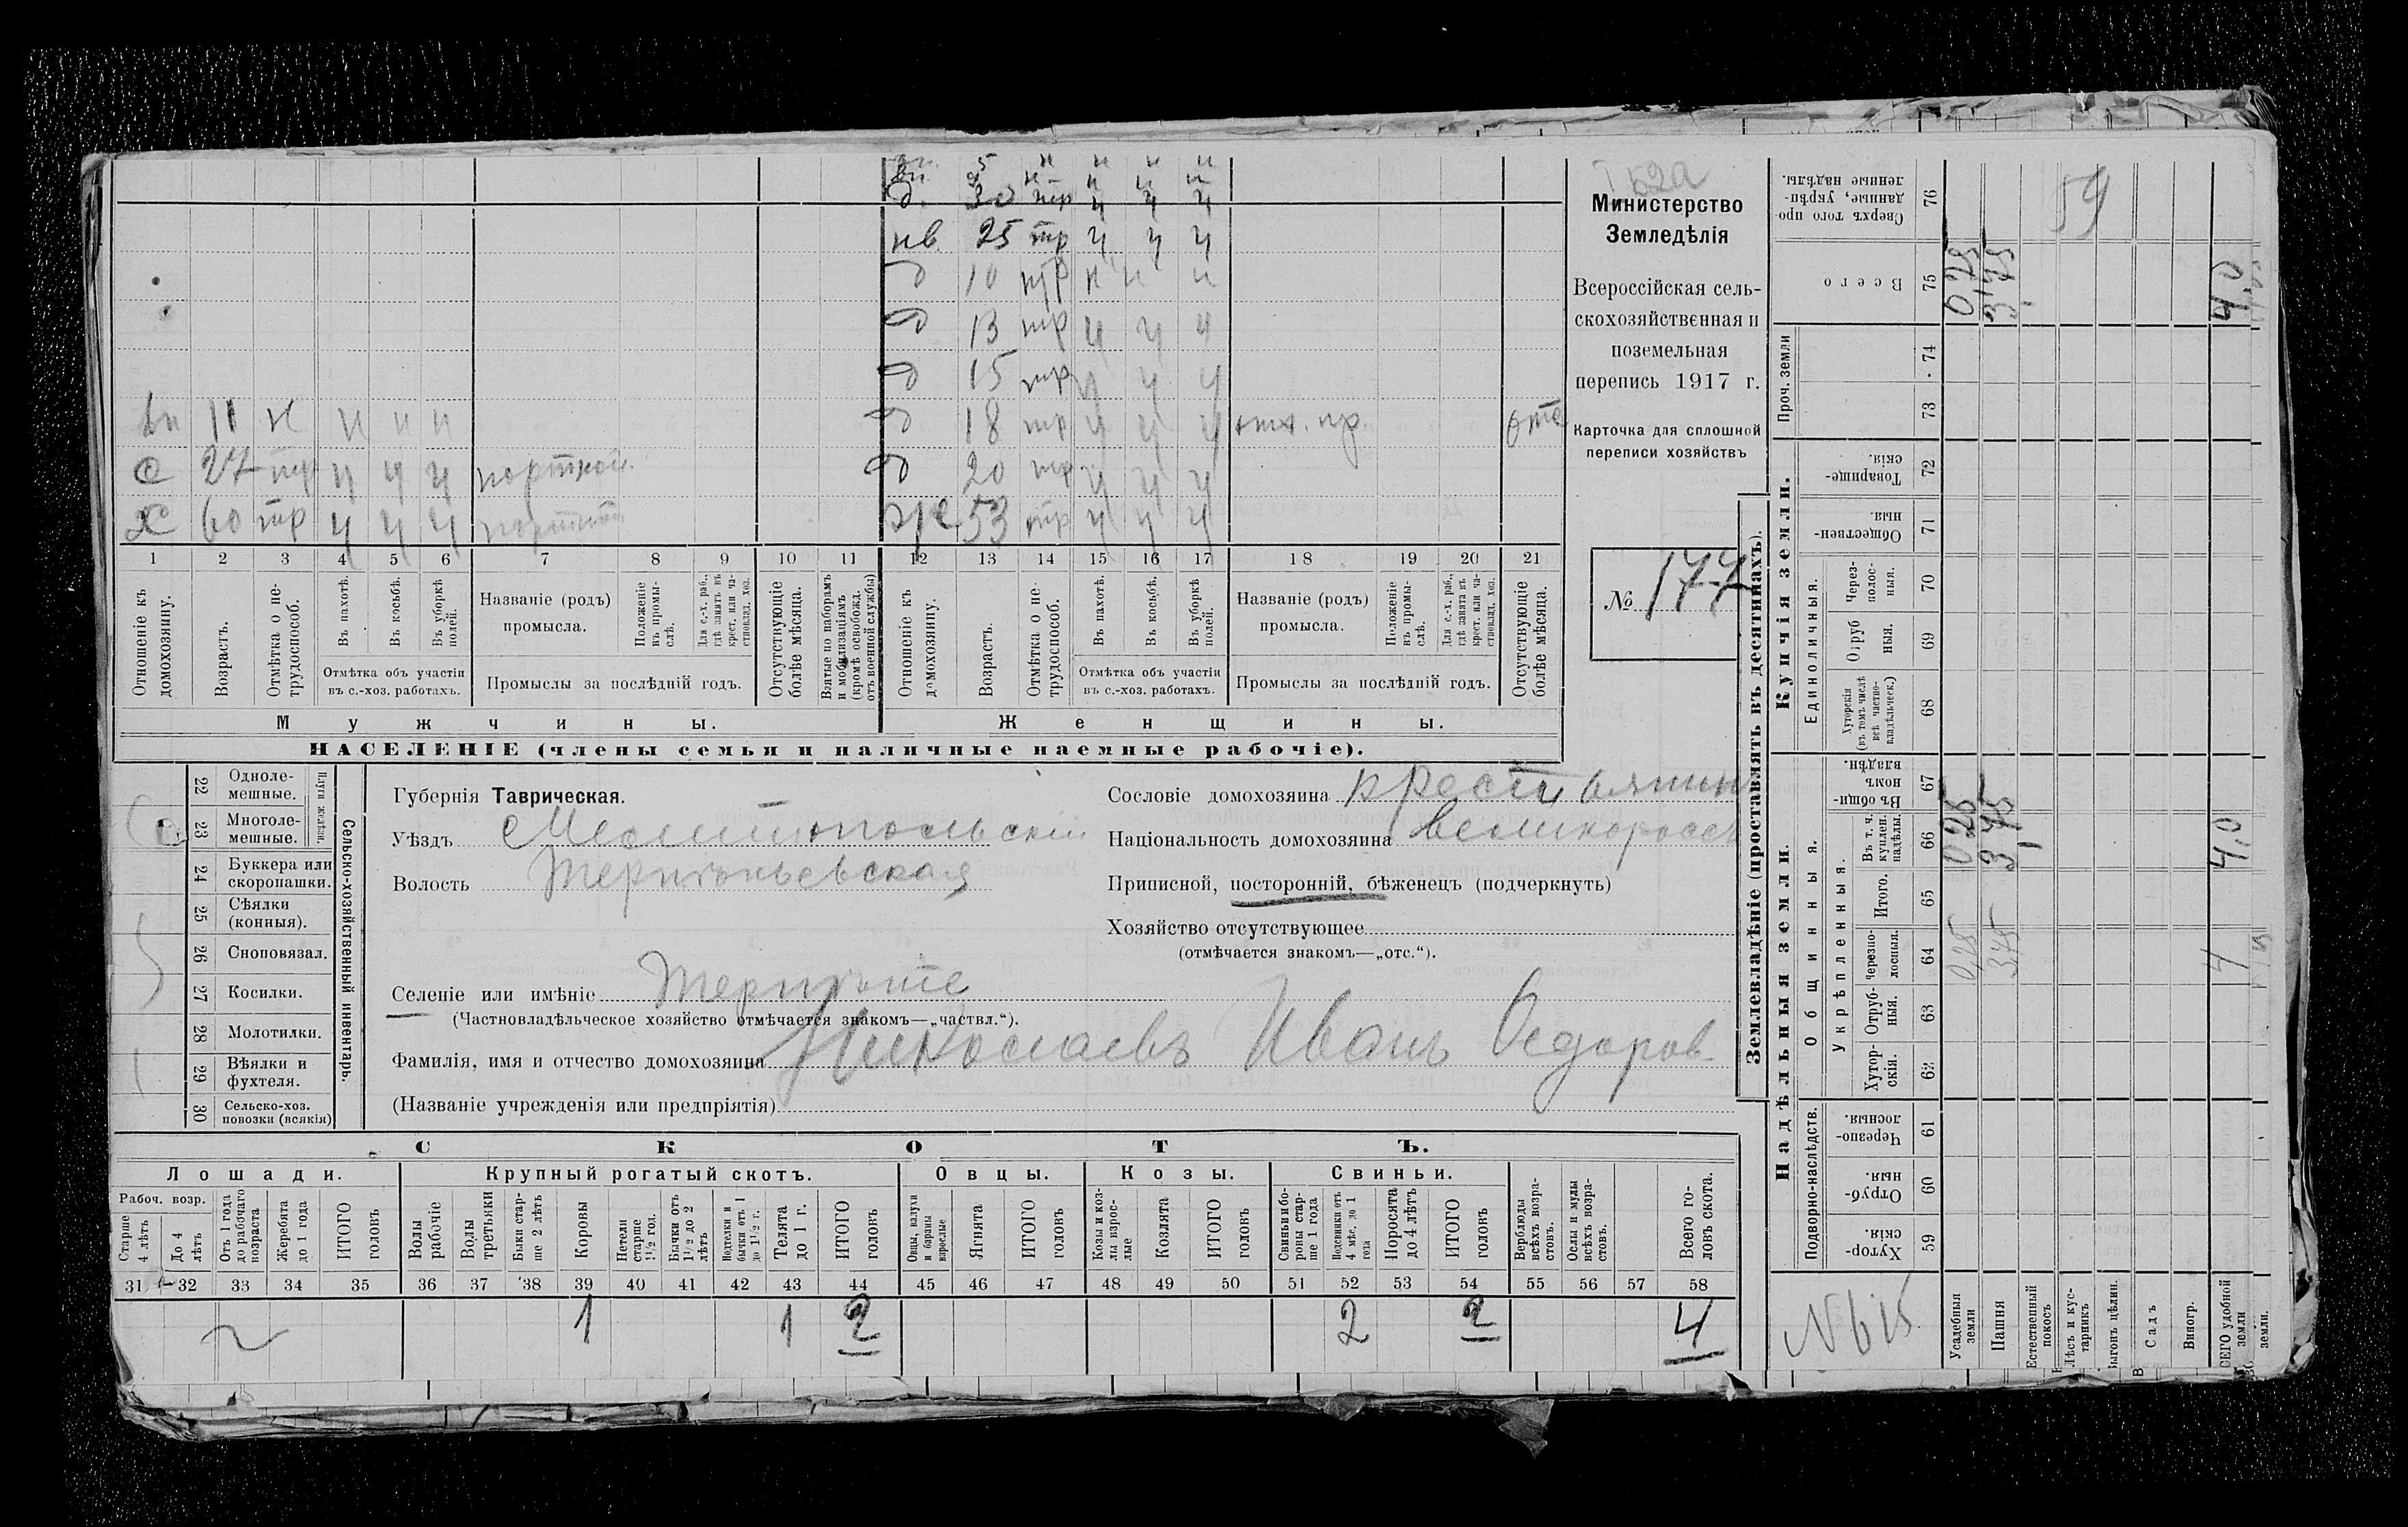 вн 5 н н н н
вн 8 н н н н
д. 30 тр ч ч ч
нв 25 тр ч ч ч
д 10 тр н н н
д 13 тр ч ч ч
д 15 тр ч ч ч
вн 11 н н н н д 18 тр ч ч ч отх. пр. отс
с 27 тр ч ч ч портной д 20 тр ч ч ч
х 60 тр ч ч ч портной же 53 тр ч ч ч
1 2 3 4 5 6 7 8 9 10 11 12 13 14 15 16 17 18 19 20 21
Отношеніе къ домохозяину.
Возрастъ.
Отмѣтка о нетрудоспособ.
Въ пахотѣ.
Въ косьбѣ.
Въ уборкѣ полей.
Отмѣтка объ участіи въ с.-хоз. работахъ.
Названіе (родъ) промысла.
Положеніе въ промыслѣ.
Для с.-х. раб., гдѣ занятъ въ крест. или частновлад. хоз.
Промыслы за послѣдній годъ.
Отсутствующіе болѣе мѣсяца.
Взятые по наборамъ и мобилизаціямъ (кромѣ освобожд. отъ военной службы)
Отношеніе къ домохозяину.
Возрастъ.
Отмѣтка о нетрудоспособ.
Въ пахотѣ.
Въ косьбѣ.
Въ уборкѣ полей.
Отмѣтка объ участіи въ с.-хоз. работахъ.
Названіе (родъ) промысла.
Положеніе въ промыслѣ.
Для с.-х. раб., гдѣ занята въ крест. или частновлад. хоз.
Промыслы за послѣдній годъ.
Отсутствующіе болѣе мѣсяца.
Мужчины. Женщины.
НАСЕЛЕНІЕ (члены семьи и наличные наемные рабочіе).
Министерство
Земледѣлія
Всероссійская сель-
скохозяйственная и
поземельная
перепись 1917 г.
Карточка для сплошной
переписи хозяйствъ
№ 177
22 Однолемешные.
23 Многолемешные.
Плуги желѣзн.
24 Буккера или скоропашки.
25 Сѣялки (конныя).
26 Сноповязал.
27 Косилки.
28 Молотилки.
29 Вѣялки и фухтеля.
30 Сельско-хоз. повозки (всякія)
Сельско-хозяйственный инвентарь.
Губернія Таврическая.
Уѣздъ Мелитопольскій
Волость Терпѣньевская
Селеніе или имѣніе Терпѣніе
(Частновладѣльческое хозяйство отмѣчается знакомъ—„частвл.“).
Фамилія, имя и отчество домохозяина Николаевъ Иванъ Федоров.
(Названіе учрежденія или предпріятія)
Сословіе домохозяина крестьянинъ
Національность домохозяина великороссъ
Приписной, посторонній, бѣженецъ (подчеркнуть)
Хозяйство отсутствующее
(отмѣчается знакомъ—„отс.“).
СКОТЪ.
Лошади. Крупный рогатый скотъ. Овцы. Козы. Свиньи.
Рабоч. возр.
Старше 4 лѣтъ
До 4 лѣтъ
Отъ 1 года до рабочаго возраста
Жеребята до 1 года
ИТОГО головъ
Волы рабочіе
Волы третьяки
Быки старше 2 лѣтъ
Коровы
Нетели старше 1½ год.
Бычки отъ 1½ до 2 лѣтъ
Нодтелки и бычки отъ 1 до 1½ г.
Телята до 1 г.
ИТОГО головъ
Овцы, валухи и бараны взрослые
Ягнята
ИТОГО головъ
Козы и козлы взрослые
Козлята
ИТОГО головъ
Свиньи и боровы старше 1 года
Подсвинки отъ 4 мѣс. до 1 года
Поросята до 4 лѣтъ
ИТОГО головъ
Верблюды всѣхъ возрастовъ.
Ослы и мулы всѣхъ возрастовъ.
Всего головъ скота.
31 32 33 34 35 36 37 38 39 40 41 42 43 44 45 46 47 48 49 50 51 52 53 54 55 56 57 58
1 1 2 2 2 4
Землевладѣніе (проставлять въ десятинахъ).
Купчія земли.
Надѣльныя земли.
Проч. земли
Единоличныя.
Общинныя.
Укрѣпленныя.
Подворно-наслѣдств.
76 Сверхъ того проданные, укрѣпленные надѣлы.
75 Всего
74
73
72 Товарищескія.
71 Общественныя.
70 Черезполосныя.
69 Отрубныя.
68 Хуторскія (въ томъ числѣ всѣ частновладѣльческ.)
67 Въ общинномъ владѣн.
66 Въ т. ч. куплен. надѣлы.
65 Итого.
64 Черезполосныя.
63 Отрубныя.
62 Хуторскія.
61 Черезполосныя.
60 Отрубныя.
59 Хуторскія.
59
0,25 3,75 4,0
0,25 3,75 4,0
0,25 3,75 4
N 615
Усадебныя земли
Пашня
Естественный покосъ
Лѣсъ и кустарникъ
Выгонъ цѣлин.
Садъ
Виногр.
ВСЕГО удобной земли
земли.